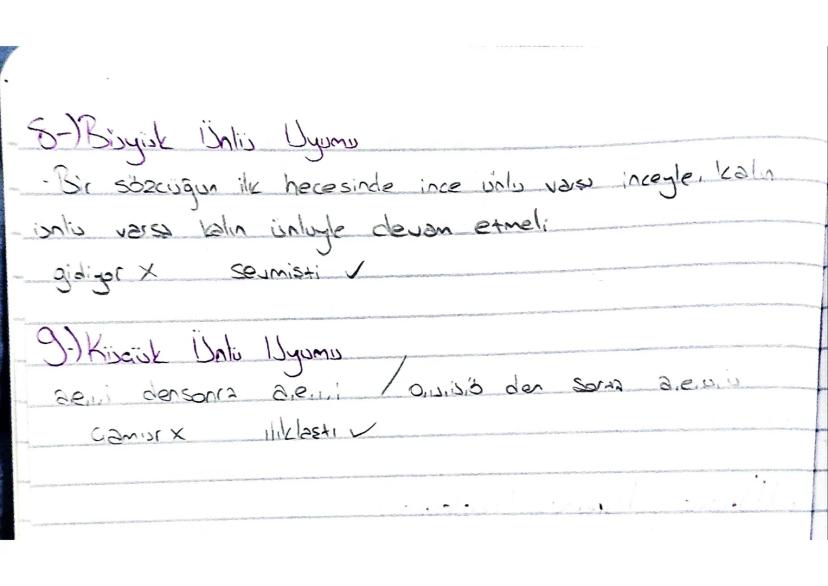 8-) Büyük Ünlü Uyumu
- Bir sözcüğün ilk hecesinde ince ünlü varsa inceyle, kalın
ünlü varsa kalın ünlüyle devam etmeli
gidiyor X sevmişti ✓
9-) Küçük Ünlü Uyumu
a,e,ı,i den sonra a,e,ı,i / o,u,ü,ö den sonra a,e,u,ü
çamur X ılıklaştı ✓